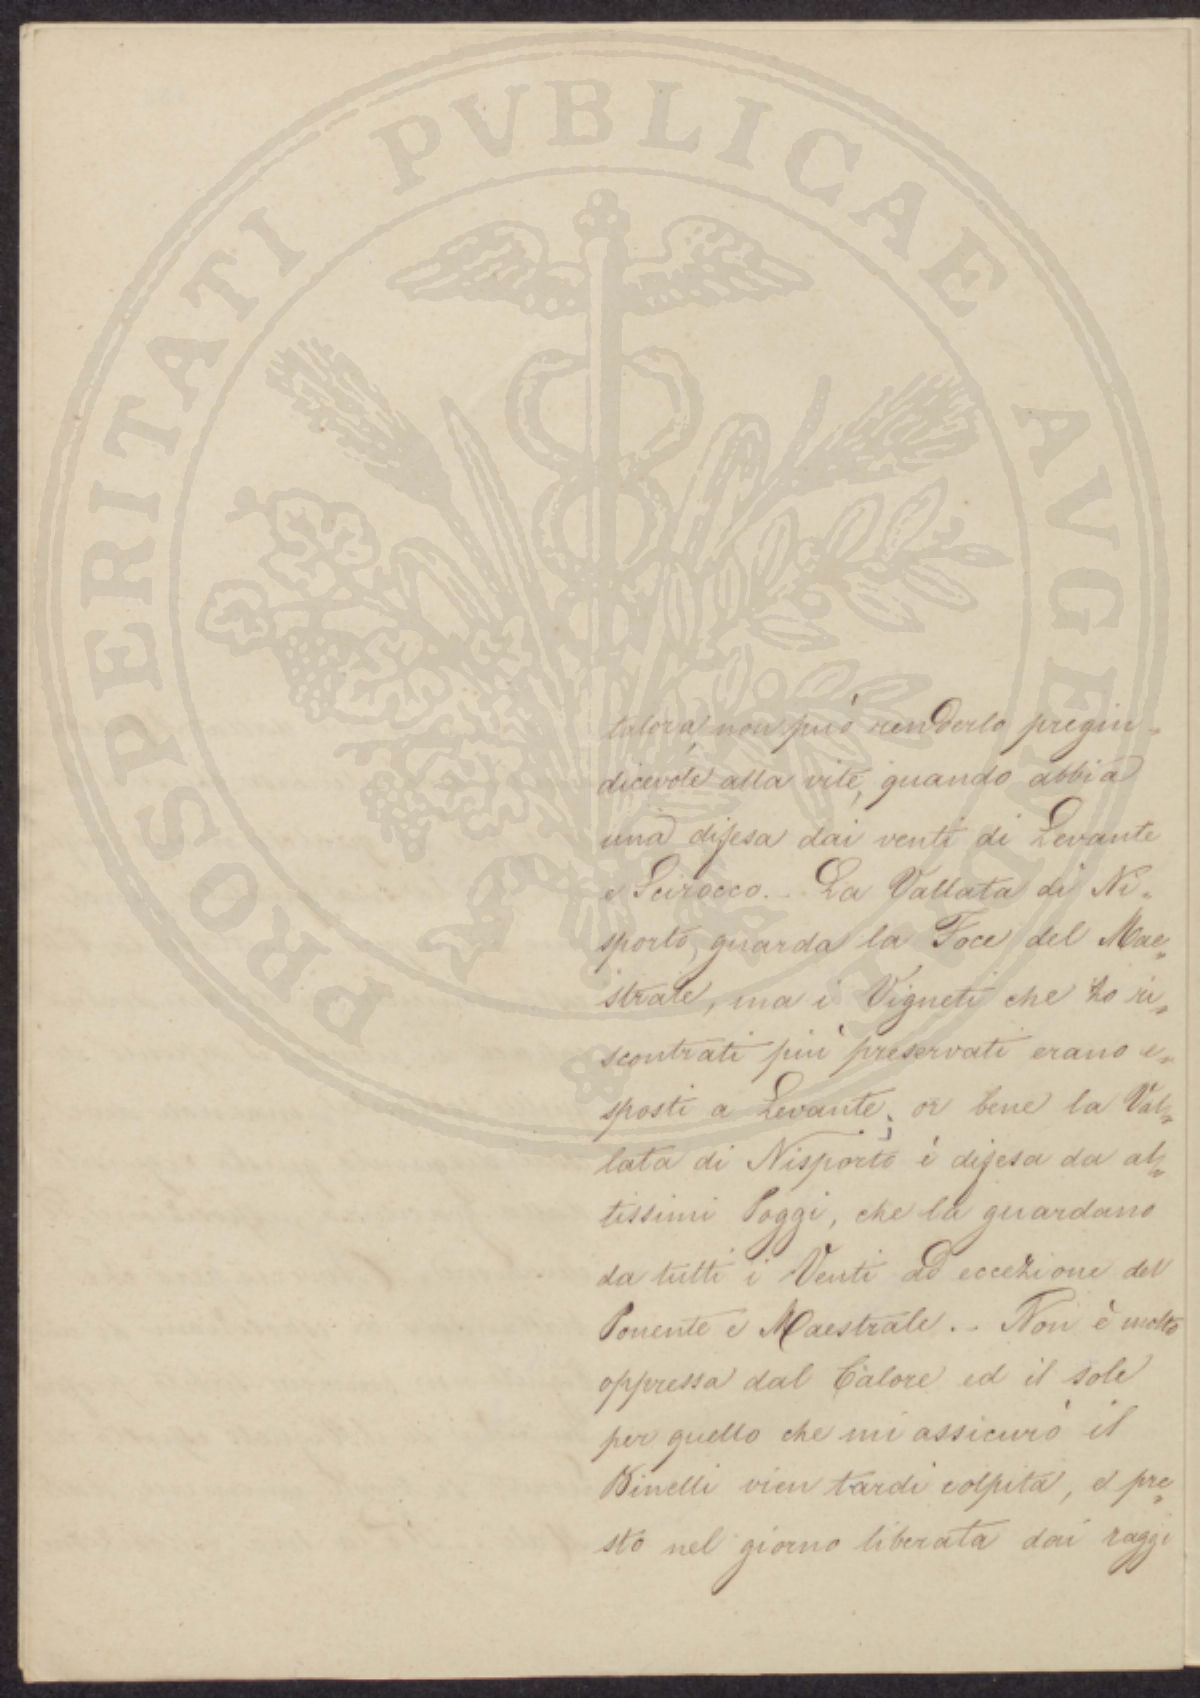 PROSPERITATI PVBLICAE AVGENDAE
talora non può renderlo pregiu-
dicevole alla vite, quando abbia
una difesa dai venti di Levante
e Scirocco. - La Vallata di Ni-
sporto, guarda la Foce del Mae-
strale, ma i Vigneti che ho ri-
scontrati più preservati erano e-
sposti a Levante; or bene la Val-
lata di Nisporto è difesa da al-
tissimi Poggi, che la guardano
da tutti i Venti ad eccezione del
Ponente e Maestrale. - Non è molto
oppressa dal Calore ed il sole
per quello che mi assicurò il
Binelli vien tardi colpita, e pre-
sto nel giorno liberata dai raggi